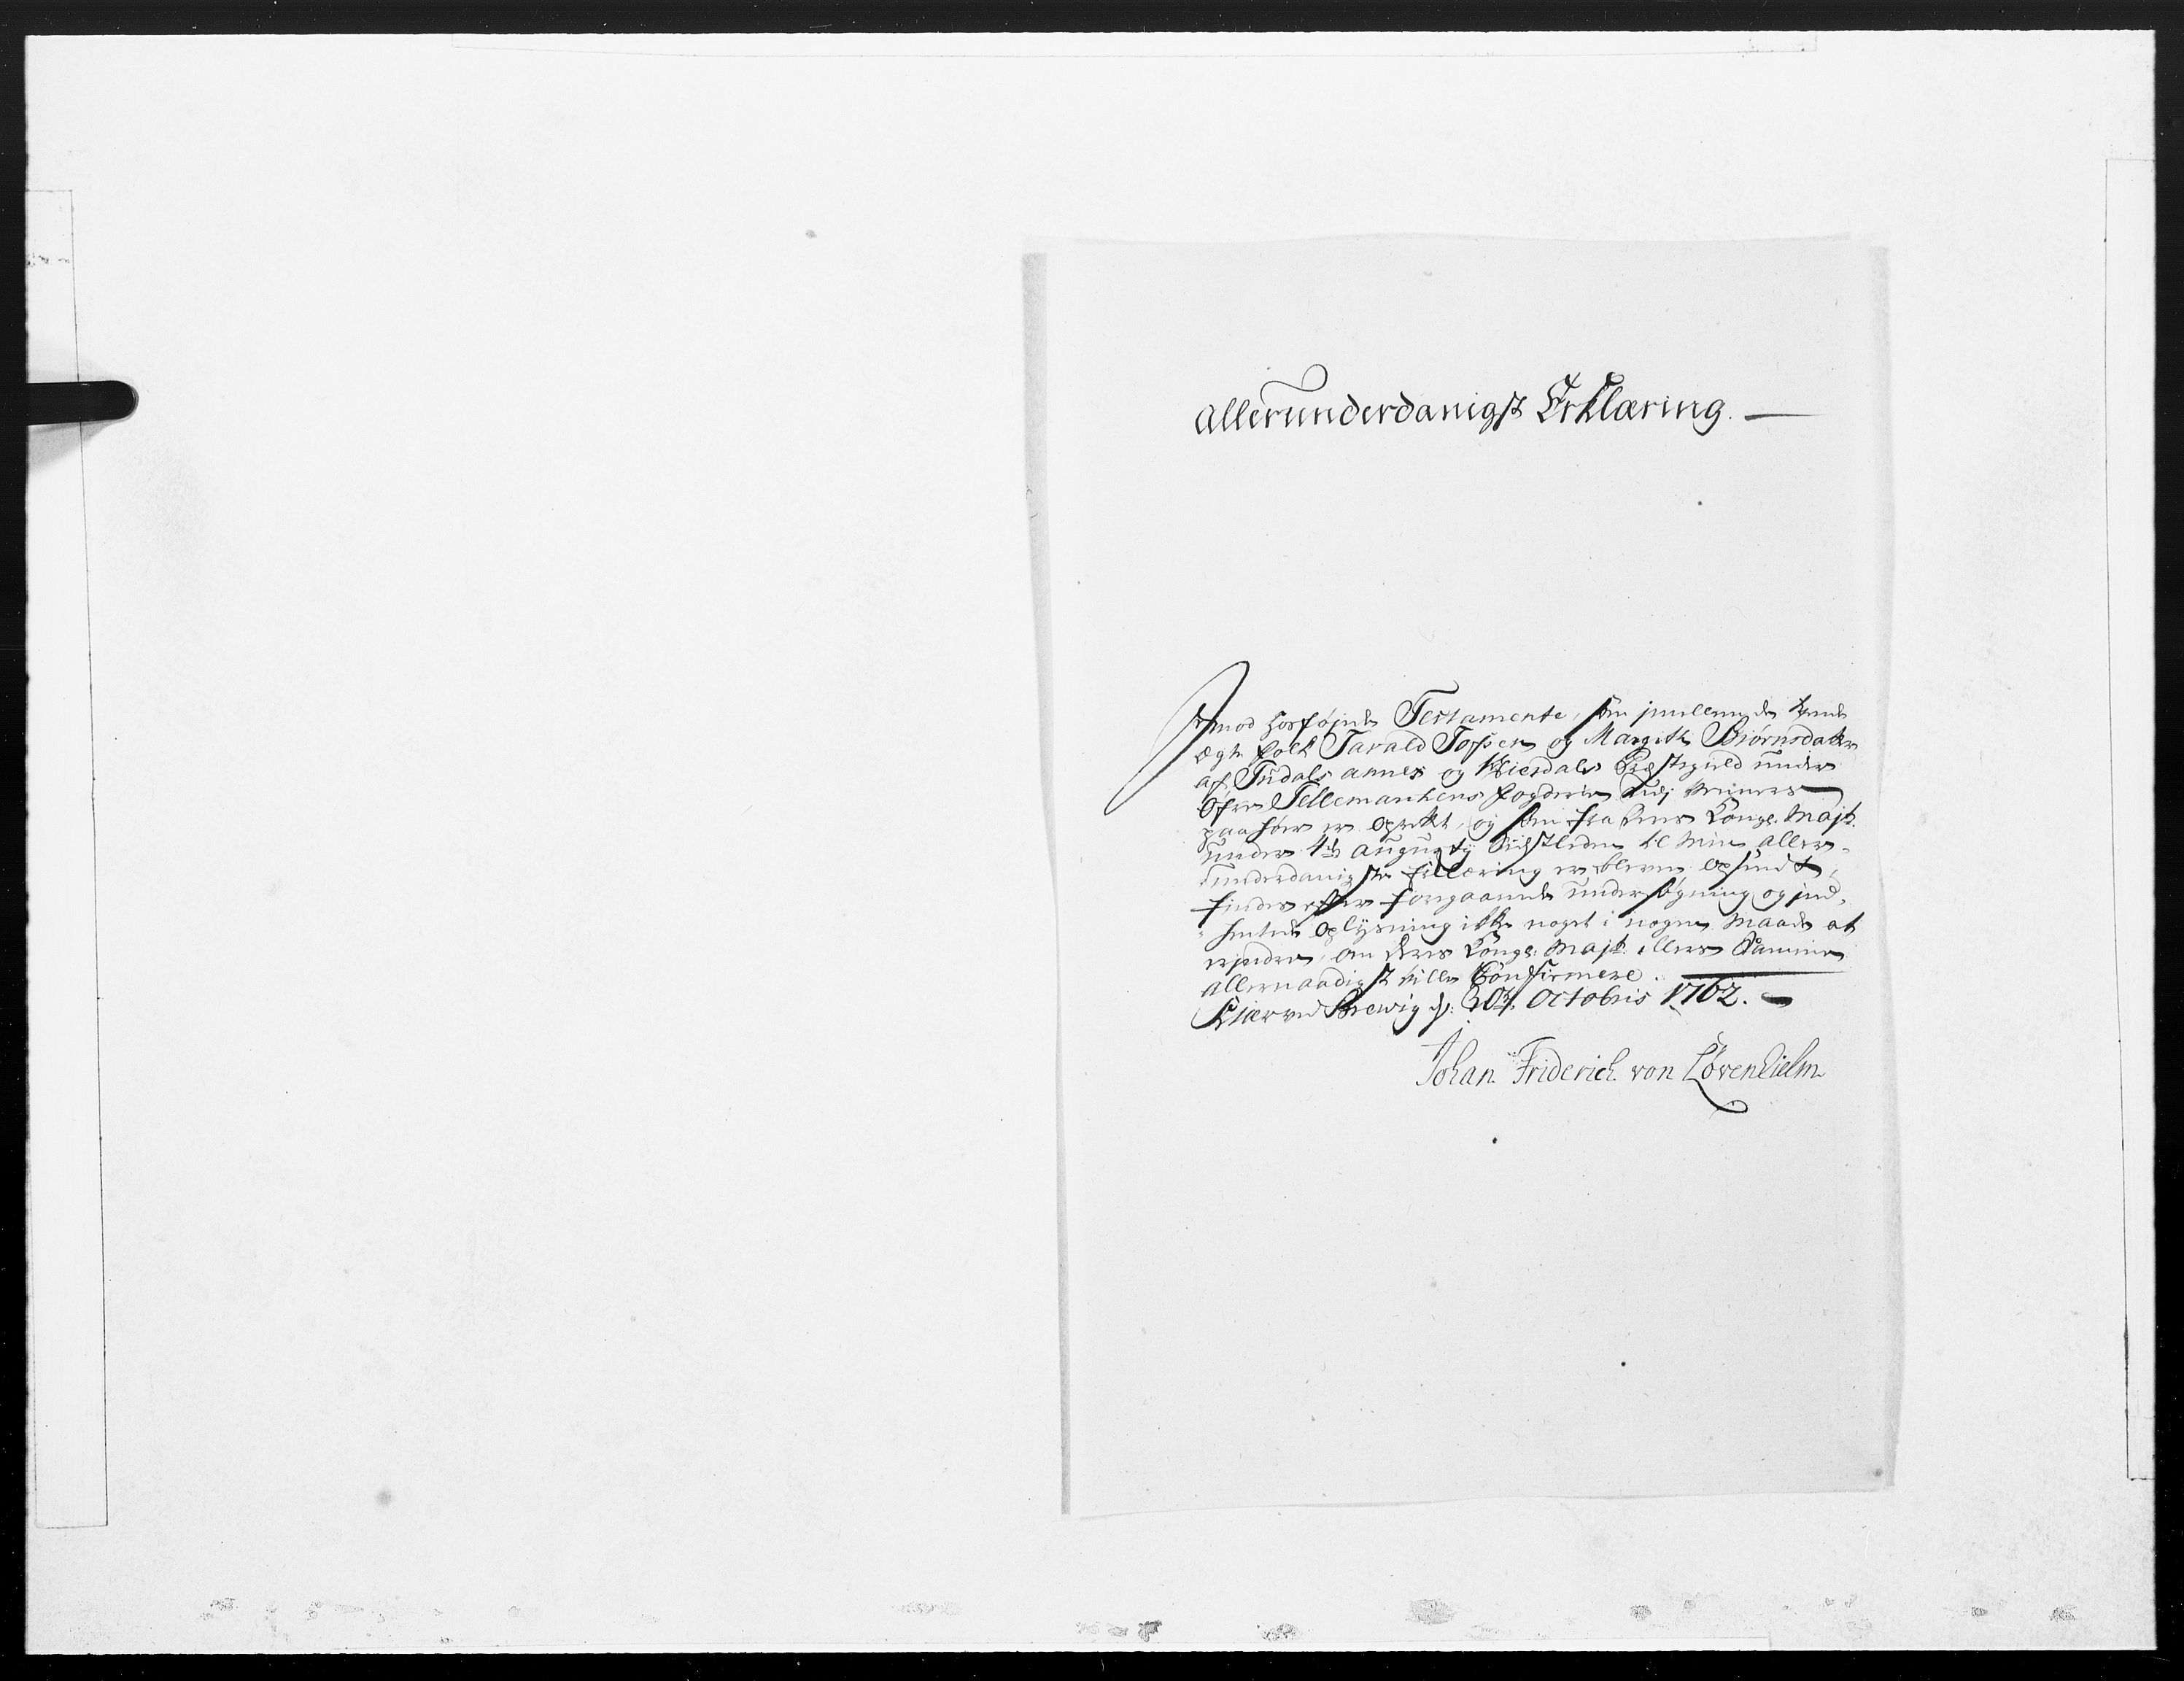 allerunderdanigst Erklæring. —
Imod hosføjede Testamente, som imellem de tvende
ægte folk Tarald Torsen og Margith Biörnsdatter
af Tudals annex og Hierdals Præstegield under
Øfre Tellemarkens fogderie
er oprett, og som fra Deres Kongl. Mayt.
under 4de Augusty sidstleden til min aller-
underdanigste Erklæring er bleven opsendt,
findes efter foregaaende undersøgning og ind-
hentede oplysning ikke noget i nogen maade at
erjndre, om Deres Kongl. Mayt. ellers samme
allernaadigst ville Confirmere. —
Kiær ved Brewig d: 20de Octobris 1762. —
Johan Friderich von Lövenhielm